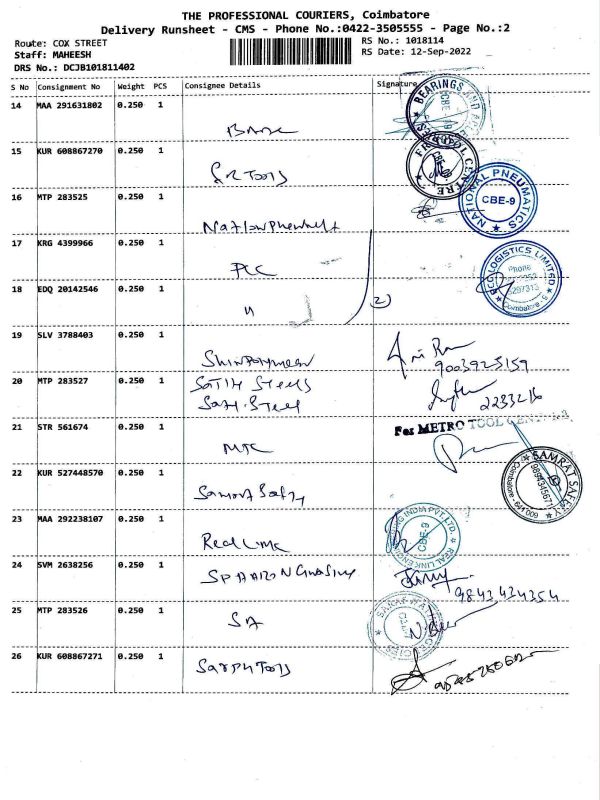 THE PROFESSIONAL COURIERS, Coimbatore
Delivery Runsheet - CMS - Phone No.:0422-3505555 - Page No.:2
Route: COX STREET
RS No.: 1018114
Staff: MAHEESH
RS Date: 12-Sep-2022
DRS No.: DCJB101811402
S No Consignment No Weight PCS Consignee Details Signature
14 MAA 291631802 0.250 1
BEARINGS AND
15 KUR 608867270 0.250 1
SR Tools
CENTRE
16 MTP 283525 0.250 1
NATIONAL PNEUMATICS
CBE-9
17 KRG 4399966 0.250 1
PLC
LOGISTICS LIMITED
PHONE
Coimbatore - 5
18 EDQ 20142546 0.250 1
2)
19 SLV 3788403 0.250 1
9003925159
20 MTP 283527 0.250 1
Sathi Steels
2233216
21 STR 561674 0.250 1
MTC
For METRO TOOL CENTRE
22 KUR 527448570 0.250 1
SAMRAT SAFETY
23 MAA 292238107 0.250 1
Real Link
REAL LINK ENGINEERING INDIA PVT. LTD.
CBE-9
24 SVM 2638256 0.250 1
9843434354
25 MTP 283526 0.250 1
SA
26 KUR 608867271 0.250 1